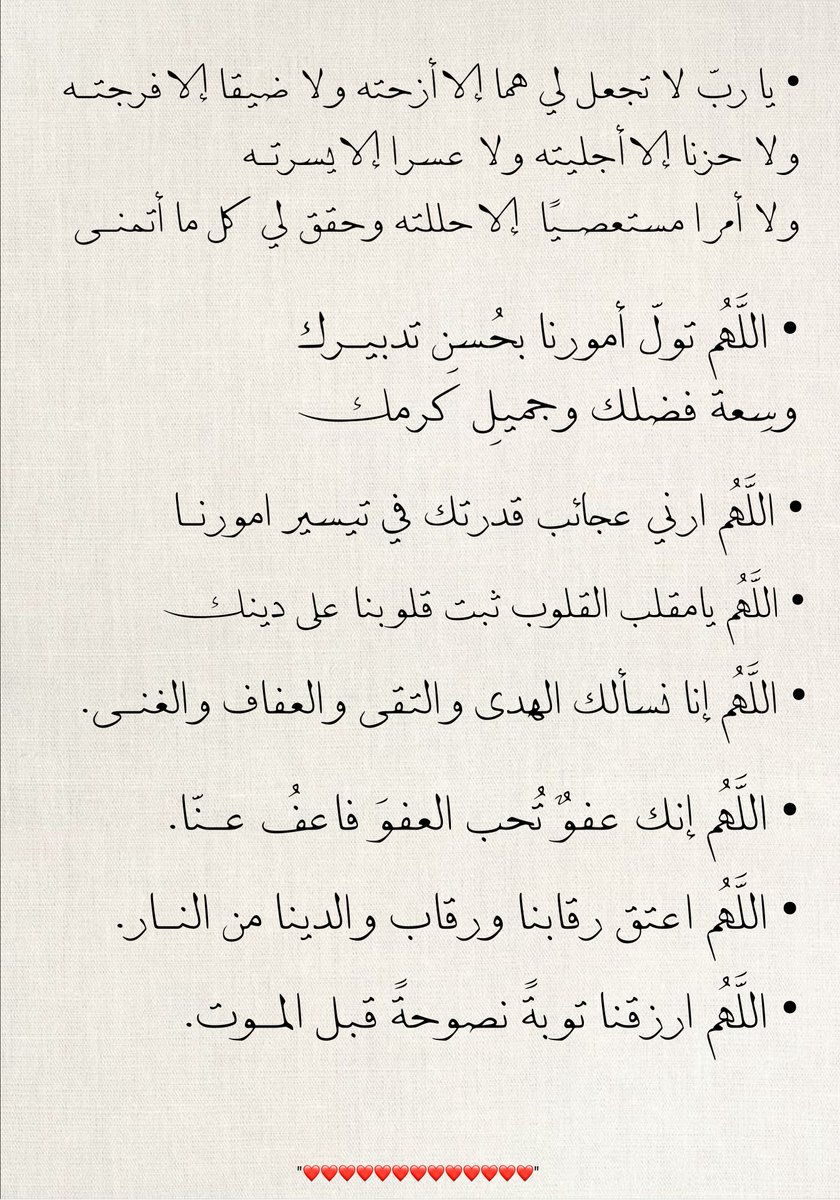 • يا ربّ لا تجعل لي هما إلا أزحته ولا ضيقا إلا فرجتــه
ولا حزنا إلا أجليته ولا عسرا إلا يسرتــه
ولا أمرا مستعصــيًا إلا حللته وحقق لي كل ما أتمنــى
• اللَّهُم تولّ أمورنا بحُسنِ تدبيــرك
وسِعة فضلك وجميلِ كَرمك
• اللَّهُم ارني عجائب قدرتك في تيسير امورنــا
• اللَّهُم يامقلب القلوب ثبت قلوبنا على دينك
• اللَّهُم إنا نسألك الهدى والتقى والعفاف والغنــى.
• اللَّهُم إنك عفوٌ تُحب العفوَ فاعفُ عــنّا.
• اللَّهُم اعتق رقابنا ورقاب والدينا من النــار.
• اللَّهُم ارزقنا توبةً نصوحةً قبل المــوت.
"❤️❤️❤️❤️❤️❤️❤️❤️❤️❤️❤️❤️❤️"